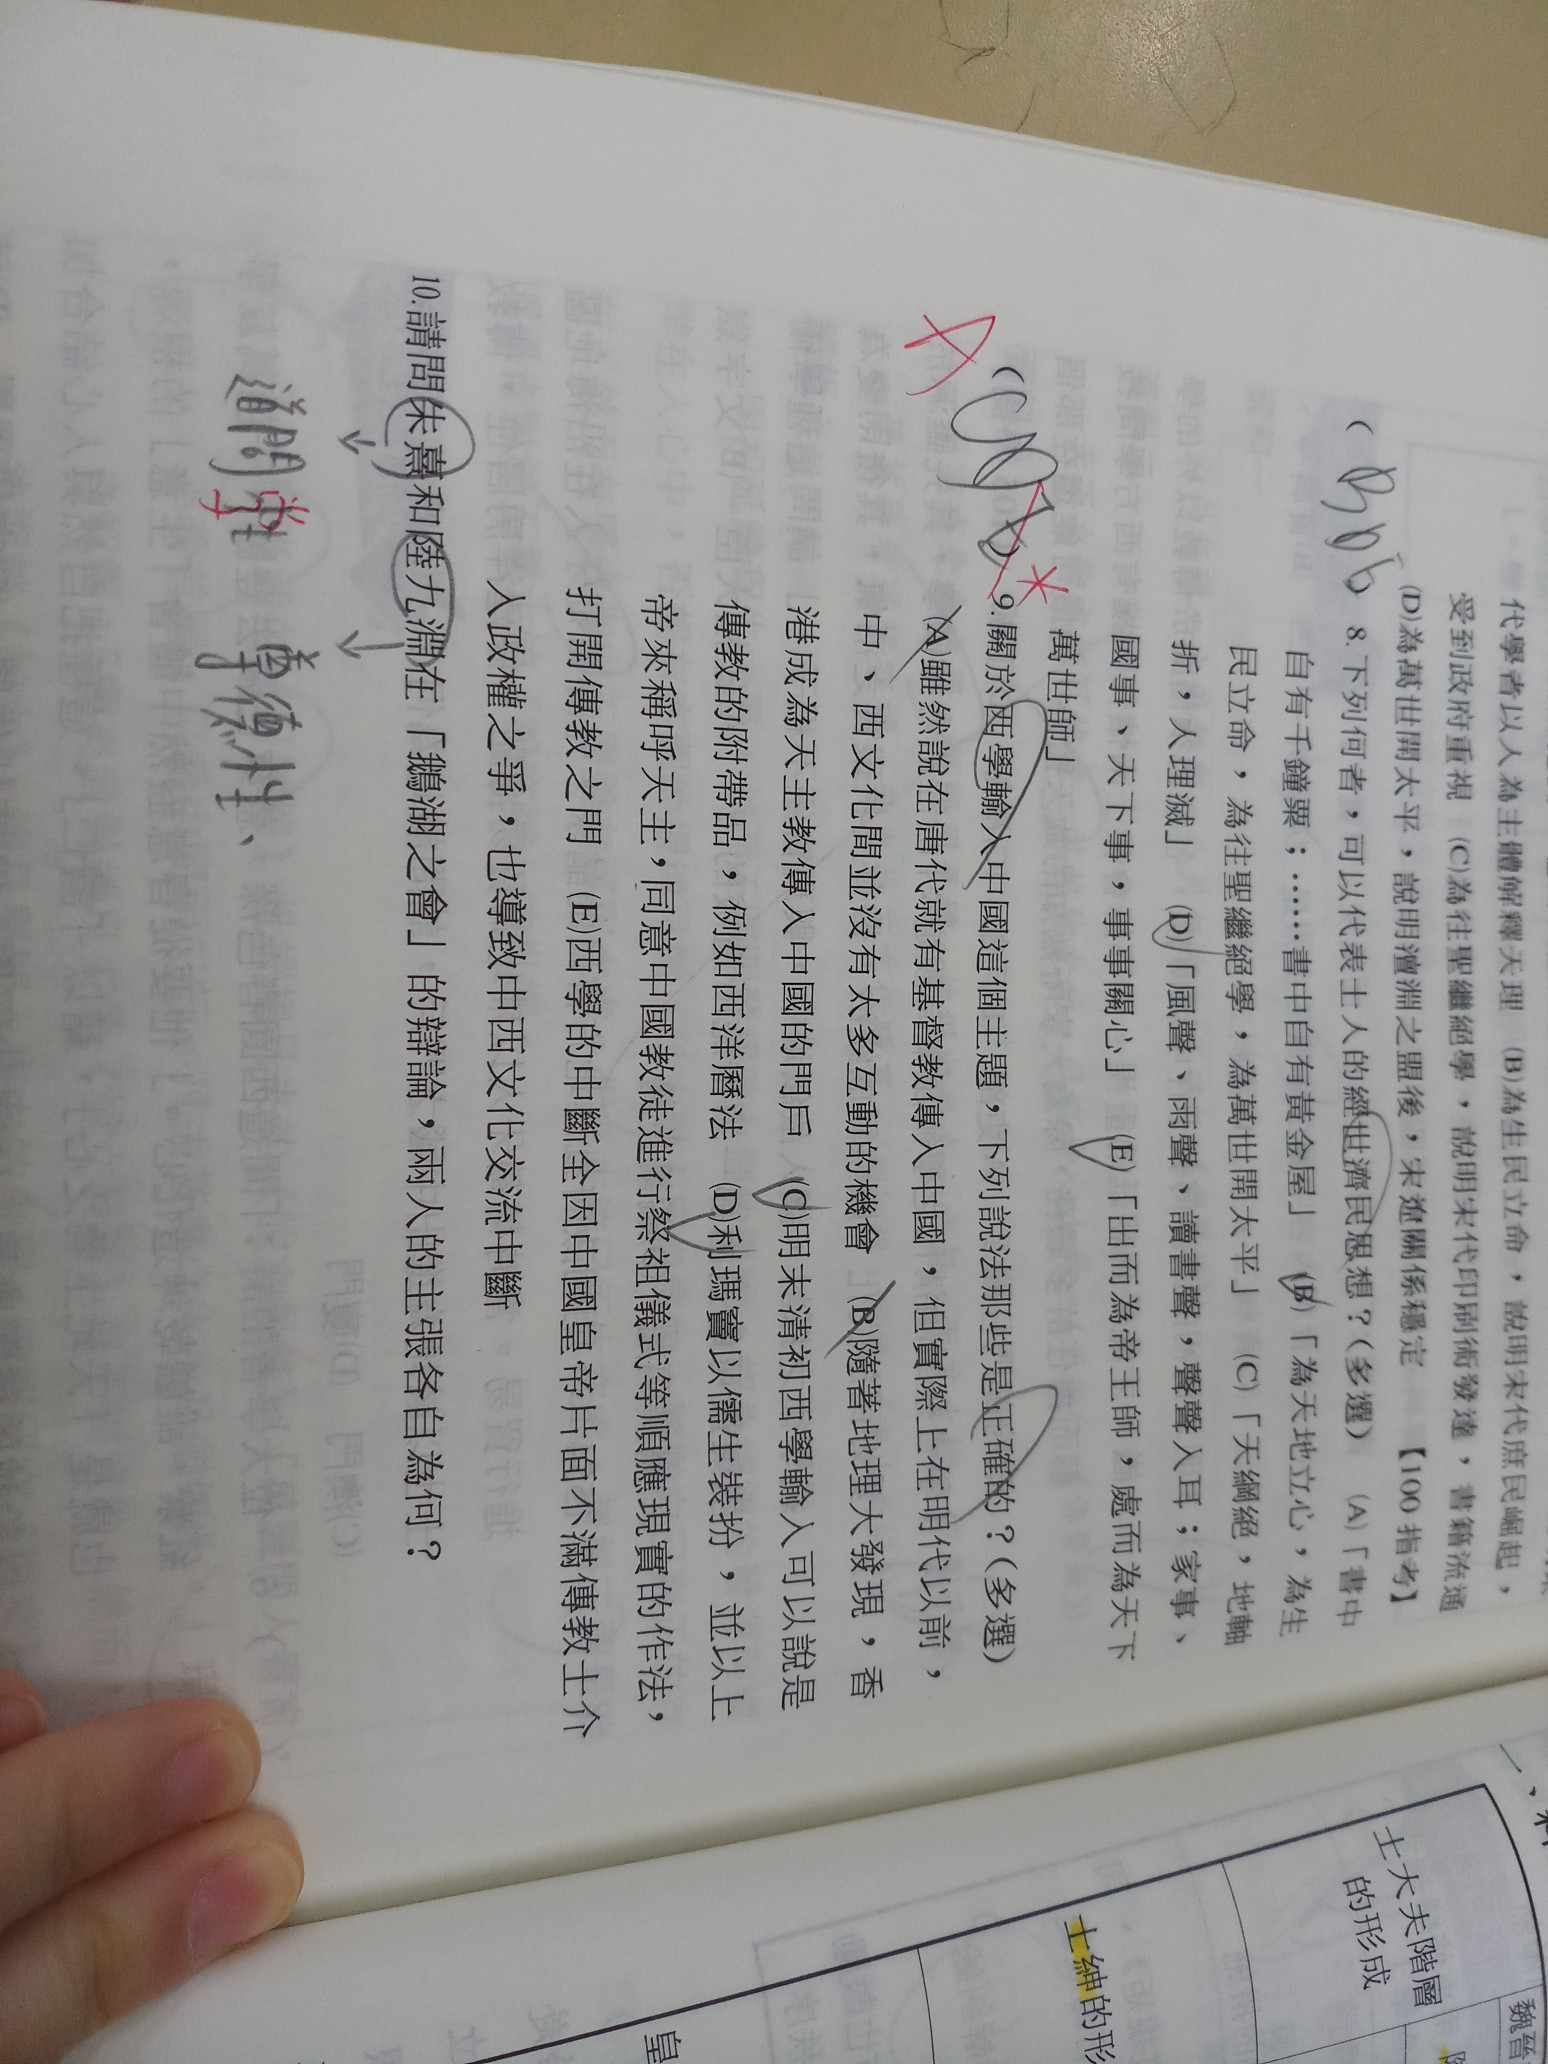 代學者以人為主體解釋天理 (B)為生民立命，說明宋代庶民崛起，
受到政府重視 (C)為往聖繼絕學，說明宋代印刷術發達，書籍流通
(D)為萬世開太平，說明澶淵之盟後，宋遼關係穩定 【100指考】
(BDE 8.下列何者，可以代表士人的經世濟民思想？(多選) (A)「書中
自有千鐘粟；……書中自有黃金屋」 (B)「為天地立心，為生
民立命，為往聖繼絕學，為萬世開太平」 (C)「天綱絕，地軸
折，人理滅」 (D)「風聲、雨聲、讀書聲，聲聲入耳；家事、
國事、天下事，事事關心」 (E)「出而為帝王師，處而為天下
萬世師」
9.關於西學輸入中國這個主題，下列說法那些是正確的？(多選)
(A)雖然說在唐代就有基督教傳入中國，但實際上在明代以前，
中、西文化間並沒有太多互動的機會 (B)隨著地理大發現，香
港成為天主教傳入中國的門戶 (C)明末清初西學輸入可以說是
傳教的附帶品，例如西洋曆法 (D)利瑪竇以儒生裝扮，並以上
帝來稱呼天主，同意中國教徒進行祭祖儀式等順應現實的作法，
打開傳教之門 (E)西學的中斷全因中國皇帝片面不滿傳教士介
入政權之爭，也導致中西文化交流中斷
10.請問朱熹和陸九淵在「鵝湖之會」的辯論，兩人的主張各自為何？
道問學 尊德性、
士大夫階層
的形成
魏晉
士紳的形
皇